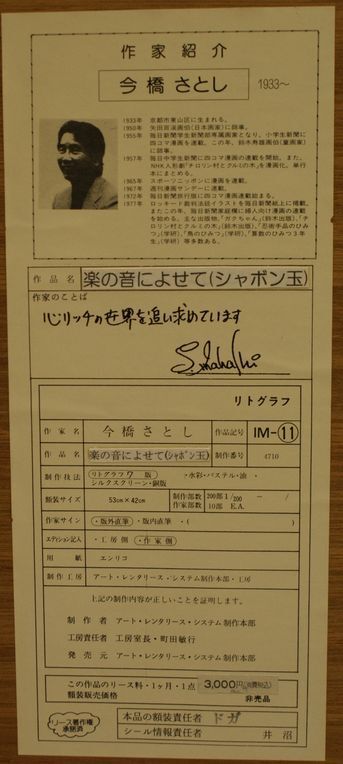 作家紹介
今橋さとし 1933〜
1933年 京都市東山区に生まれる。
1950年 矢田宗渓画伯(日本画家)に師事。
1955年 毎日新聞学生新聞部専属画家となり、小学生新聞に
四コマ漫画を連載。この年、鈴木寿雄画伯(童画家)
に師事。
1957年 毎日中学生新聞に四コマ漫画の連載を開始。また、
NHK人形劇「チロリン村とくるみの木」を漫画化。単行
本にまとめる。
1965年 スポーツニッポンに漫画を連載。
1967年 週刊漫画サンデーに連載。
1972年 毎日新聞旅行版に四コマ漫画連載始まる。
1977年 ロッキード裁判法廷イラストを毎日新聞紙上に掲載。
またこの年、毎日新聞家庭欄に婦人向け漫画の連載
を始める。主な出版物、「ガクちゃん」(鈴木出版)、「チ
ロリン村とくるみの木」(鈴木出版)、「忍術手品のひみ
つ」(学研)、「鳥のひみつ」(学研)、「算数のひみつ3年
生」(学研) 等多数ある。
作品名 楽の音によせて(シャボン玉)
作家のことば
心リッチの世界を追い求めています
S. Imahashi
リトグラフ
作家名 今橋さとし 作品記号 IM-⑪
作品名 楽の音によせて(シャボン玉) 制作番号 4710
制作技法 リトグラフ7版 ・水彩・パステル・油・
シルクスクリーン・銅版
額装サイズ 53cm×42cm 制作部数 200部 1/200 ~ /
作家部数 10部 E.A.
作家サイン ・版外直筆・版内直筆・( )
エディション記入 ・工房側・作家側
用紙 エンリコ
制作工房 アート・レンタリース・システム制作本部・工房
上記の制作内容が正しいことを証明します。
制作者 アート・レンタリース・システム制作本部
工房責任者 工房室長・町田敏行
発売元 アート・レンタリース・システム制作本部
この作品のリース料・1ヶ月・1点 3,000円(消費税込)
額装販売価格 非売品
リース著作権
承諾済
本品の額装責任者 ドガ
シール情報責任者 井沼